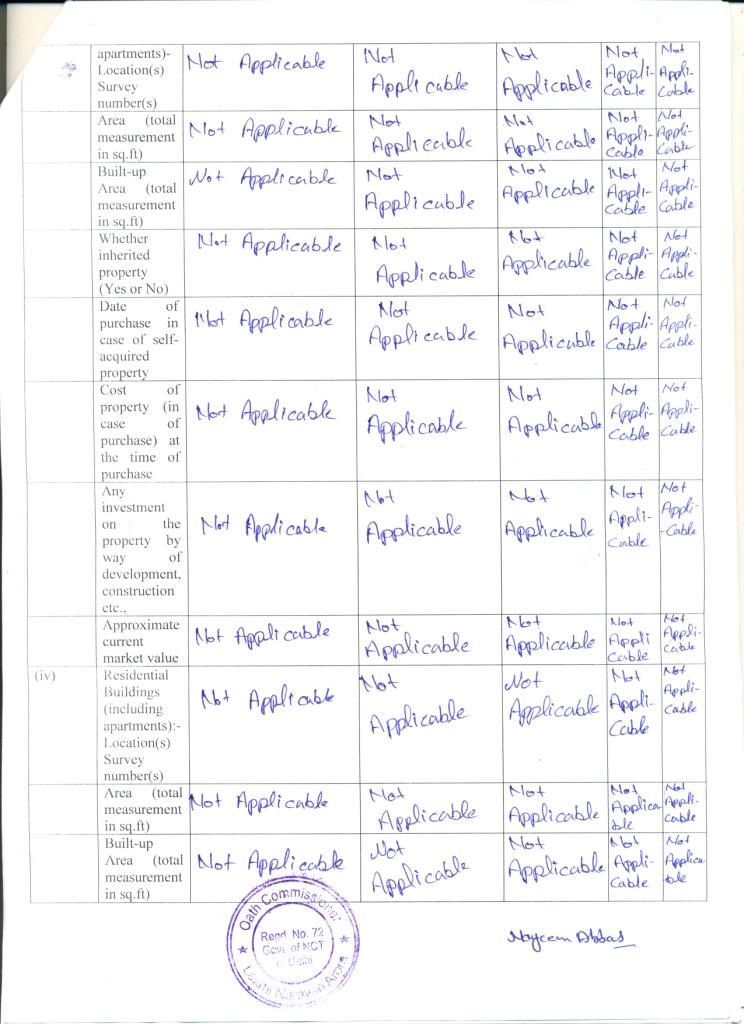 apartments)- Not Applicable Not Not Not Not
Location(s) Applicable Applicable Appli- Appli-
Survey Cable Cable
number(s)
Area (total Not Applicable Not Not Not Not
measurement Applicable Applicable Appli- Appli-
in sq.ft) Cable Cable
Built-up Not Applicable Not Not Not Not
Area (total Applicable Applicable Appli- Appli-
measurement Cable Cable
in sq.ft)
Whether Not Applicable Not Not Not Not
inherited Applicable Applicable Appli- Appli-
property Cable Cable
(Yes or No)
Date of Not Applicable Not Not Not Not
purchase in Applicable Applicable Appli- Appli-
case of self- Cable Cable
acquired
property
Cost of Not Applicable Not Not Not Not
property (in Applicable Applicable Appli- Appli-
case of Cable Cable
purchase) at
the time of
purchase
Any Not Applicable Not Not Not Not
investment Applicable Applicable Appli- Appli-
on the Cable -Cable
property by
way of
development,
construction
etc.,
Approximate Not Applicable Not Not Not Not
current Applicable Applicable Appli Appli-
market value Cable Cable
(iv) Residential Not Applicable Not Not Not Not
Buildings Applicable Applicable Appli- Appli-
(including Cable Cable
apartments):-
Location(s)
Survey
number(s)
Area (total Not Applicable Not Not Not Not
measurement Applicable Applicable Applica Appli-
in sq.ft) ble Cable
Built-up Not Applicable Not Not Not Not
Area (total Applicable Applicable Appli- Applica
measurement Cable ble
in sq.ft)
Oath Commissioner
Regd. No. 72
Govt. of NCT
of Delhi
Laxmi Narayan Arora
Nayeem Abbas